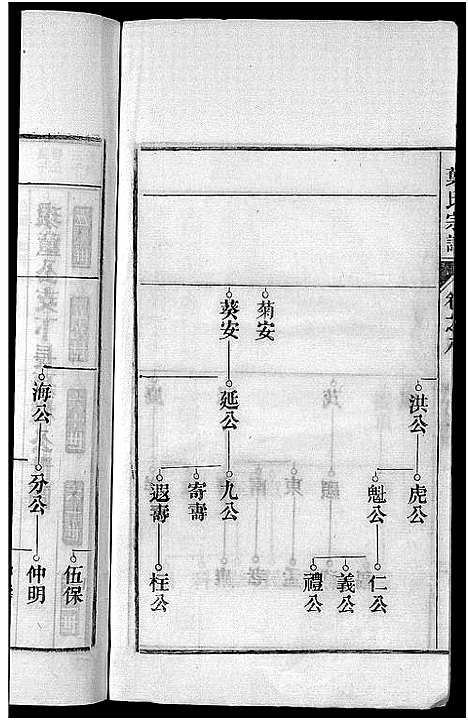 氏宗譜
洪公
虎公
魁公
仁公
義公
禮公
菊安
葵安
延公
九公
寄壽
遐壽
枉公
伍保
海公
分公
仲明